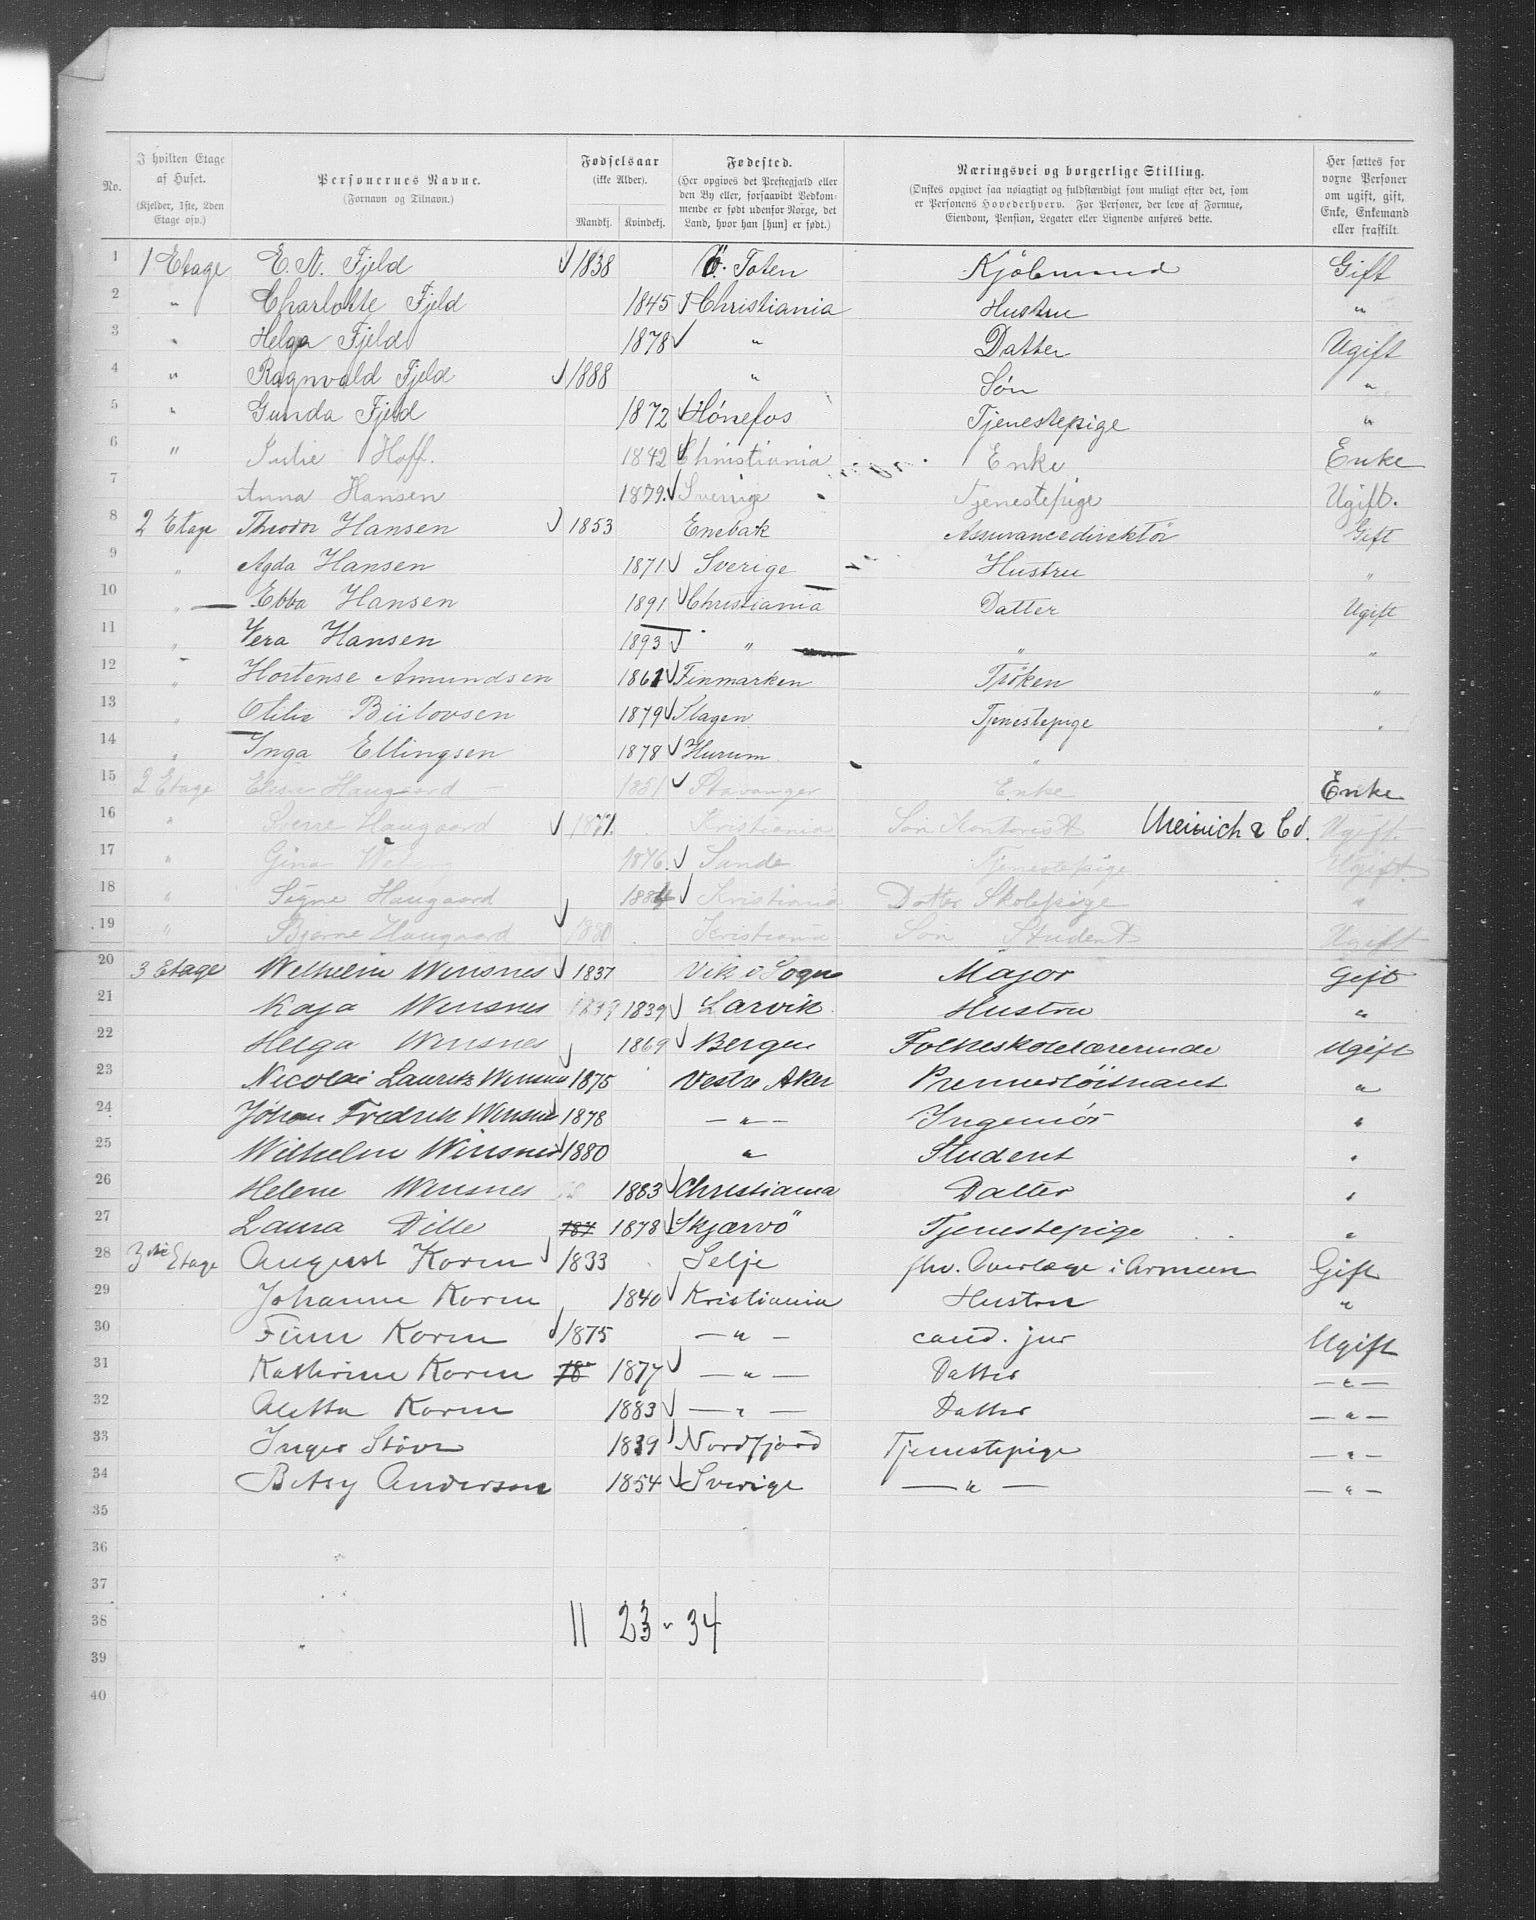 No. I hvilken Etage af Huset. (Kjelder, 1ste, 2den Etage osv.) Personernes Navne. (Fornavn og Tilnavn.) Fødselsaar (ikke Alder). Mandkj. Kvindekj. Fødested. (Her opgives det Prestegjæld eller den By eller, forsaavidt Vedkommende er født udenfor Norge, det Land, hvor han [hun] er født.) Næringsvei og borgerlige Stilling. (Ønskes opgivet saa nøiagtigt og fuldstændigt som muligt efter det, som er Personens Hovederhverv. For Personer, der leve af Formue, Eiendom, Pension, Legater eller Lignende anføres dette. Her sættes for voxne Personer om ugift, gift, Enke, Enkemand eller fraskilt.
1 1 Etage E. N. Fjeld 1838 Ö. Toten Kjöbmand Gift
2 " Charlotte Fjeld 1845 Christiania Hustru "
3 " Helga Fjeld 1878 " Datter Ugift
4 " Ragnvald Fjeld 1888 " Søn "
5 " Gunda Fjeld 1872 Hónefos Tjenestepige "
6 " Julie Hoff. 1842 Christiania Enke Enke
7 Anna Hansen 1879. Sverrige Tjenestepige Ugift.
8 2 Etage Theodor Hansen 1853 Enebak Assurancedirektör Gift
9 " Agda Hansen 1871 Sverige Hustru "
10 " Ebba Hansen 1891 Christiania Datter Ugift
11 " Vera Hansen 1893 " " "
12 " Hortense Amundsen 1861 Finmarken Frøken "
13 " 1879 Slagen Tjenestepige "
14 " Inga Ellingsen 1878 Hurum "
15 2 Etage Elisa Haugaard 1851 Stavanger Enke Enke
16 " Sverre Haugaard 1877. Kristiania Søn Kontorist Meinich & Co. Ugift.
17 " Gina 1876. Sande Tjenestepige Ugift.
18 " Signe Haugaard 1884 Kristiania Datter Skolepige "
19 " Bjarne Haugaard 1880 Kristiania Søn Student Ugift
20 3 Etage Wilhelm Winsnes 1837 Vik i Sogn Major Gift
21 Kaja Winsnes 1839 1839 Larvik Hustru "
22 Helga Winsnes 1869 Bergen Folkeskolelærerinde Ugift
23 Nicolai Lauritz Winsnes 1875 Vestre Aker Premierlöitnant "
24 Johan Fredrik Winsnes 1878 — " — Ingeniör "
25 Wilhelm Winsnes 1880 " Student "
26 Helene Winsnes 18 1883 Christiania Datter "
27 Laura Dille 187 1878 Skjærvö Tjenestepige "
28 3die Etage August Koren 1833 Selje fhv. Overlæge i Armeen Gift
29 Johanne Koren 1840 Kristiania Hustru "
30 Finn Koren 1875 — " — cand. jur Ugift
31 Kathrine Koren 18 1877 — " — Datter — " —
32 Aletta Koren 1883 — " — Datter — " —
33 Inger Stöve 1839 Nordfjord Tjenestepige — " —
34 Betsy Anderson 1854 Sverige — " — — " —
35
36
37
38 11 23 - 34
39
40